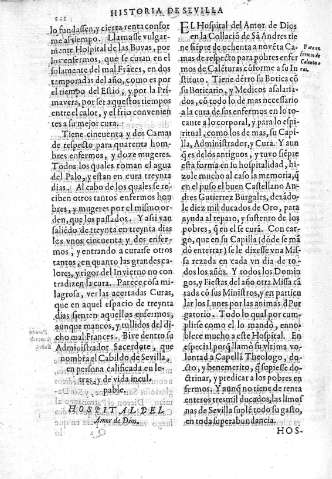 HISTORIA DE SEVILLA
lo fundassen, y cierta renta confor
me al tiempo. Llamase vulgar-
mente Hospital de las Buvas, por
los enfermos, que se curan en el
solamente del mal Frãces, en dos
tẽmporadas del año, como es por
el tiempo del Estio, y por la Pri-
mavera, por ser aquestos tiempos
entre el calor, y el frio convenien
tes a su mejor cura.
Tiene cincuenta y dos Camas
de respecto para quarenta hom
bres enfermos, y doze mugeres.
Todos los quales toman el agua
del Palo, y estan en cura treynta
dias. Al cabo de los quales se re
ciben otros tantos enfermos hom
bres, y mugeres por el mismo or-
den, que los passados. Y assi van
saliẽdo de treynta en treynta dias
les vnos cincuenta y dos enfer-
mos, y entrando a curarse otros
tantos, en quanto las grandes ca-
lores, y rigor del Invierno no con
tradizen la cura. Parece cosa mi-
lagrosa, ver las acertadas Curas,
que en aquel espacio de treynta
dias sienten aquellos enfermos,
aunque mancos, y tullidos del di-
cho mal Frances. Bive dentro su
Administrador Sacerdote, que
nombra el Cabildo de Sevilla,
en persona calificada en le-
tras, y de vidaincul-
pable.
HOSPITAL DEL
Amor de Dios.
EL Hospital del Amor de Dios
en la Collaciõ de Sã Andres tie
ne siẽpre de ochenta a novẽta Ca-
mas de respecto para pobres enfer
mos de Calẽturas cõforme a su In
stituto. Tiene dẽtro su Botica cõ
su Boticario, y Medicos asalaria-
dos, cõ todo lo de mas necessario
a la cura de sus enfermos en lo to-
cante a lo corporal, y para lo espi-
ritual, como los de mas, su Capi-
lla, Administrador, y Cura. Y aun
q̃ es delos antiguos, y tuvo siẽpre
esta forma en la hospitalidad, hi-
zole mucho al caso la memoria, q̃
en el puso el buen Castellano An
dres Gutierrez Burgales, dexádo-
le diez mil ducados de Oro, para
ayuda al reparo, y sustento de los
pobres, q̃ en el se curã. Con car-
go, que en su Capilla (dõde se mã
do enterrar) se le dixesse vna Mis-
sa rezada en cada vn dia de to-
dos los años. Y todos los Domin
gos, y Fiestas del año otra Missa cã
sada cõ sus Ministros, y en particu
lar los Lunes por las animas d̃ Pur
gatorio. Todo lo qual por cum-
plirse como el lo mandò, enno-
blece mucho a este Hospital. En
especial porq̃ llamò su vltima vo-
lontad a Capellã Theologo, do-
cto, y benemerito, q̃ supiesse do-
ctrinar, y predicar a los pobres en
fermos. Y aunq̃ no tiene de renta
enteros tres mil ducados, las limos
nas de Sevilla suplẽ todo su gasto,
en toda superabundancia.
HOS-